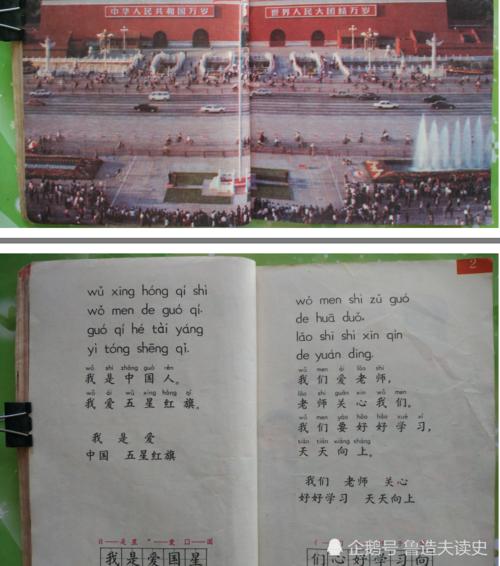 中华人民共和国万岁
世界人民大团结万岁
wǔ xīng hóng qí shì
wǒ men de guó qí.
guó qí hé tài yáng
yì tóng shēng qǐ.
wǒ shì zhōng guó rén
我是中国人。
wǒ ài wǔ xīng hóng qí
我爱五星红旗。
我 是 爱
中国 五星红旗
我是爱国星
2
wǒ men shì zǔ guó
de huā duǒ,
lǎo shī shì xīn qín
de yuán dīng.
wǒ men ài lǎo shī
我们爱老师，
lǎo shī guān xīn wǒ men
老师关心我们。
wǒ men yào hǎo hǎo xué xí
我们要好好学习，
tiān tiān xiàng shàng
天天向上。
我们 老师 关心
好好学习 天天向上
们心好学习向
企鹅号 鲁造夫读史